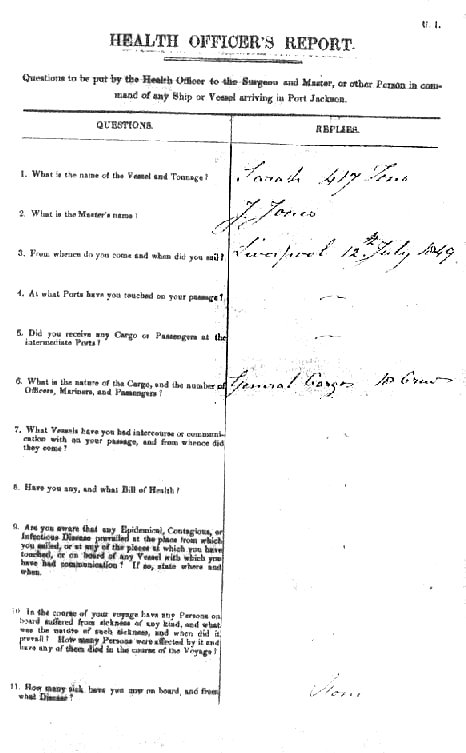 U. 1.
HEALTH OFFICER'S REPORT.
Questions to be put by the Health Officer to the Surgeon and Master, or other Person in com-
mand of any Ship or Vessel arriving in Port Jackson.
QUESTIONS. REPLIES.
1. What is the name of the Vessel and Tonnage? Sarah 417 Tons
2. What is the Master's name? J. Jones
3. From whence do you come and when did you sail? Liverpool 12th July 1849
4. At what Ports have you touched on your passage? —
5. Did you receive any Cargo or Passengers at the
intermediate Ports? —
6. What is the nature of the Cargo, and the number of General Cargo Crew
Officers, Mariners, and Passengers?
7. What Vessels have you had intercourse or communi-
cation with on your passage, and from whence did
they come?
8. Have you any, and what Bill of Health?
9. Are you aware that any Epidemical, Contagious, or
Infectious Disease prevailed at the place from which
you sailed, or at any of the places at which you have
touched, or on board of any Vessel with which you
have had communication? If so, state where and
when.
10. In the course of your voyage have any Persons on
board suffered from sickness of any kind, and what
was the nature of such sickness, and when did it
prevail? How many Persons were affected by it and
have any of them died in the course of the Voyage?
11. How many sick have you any on board, and from
what Disease? None